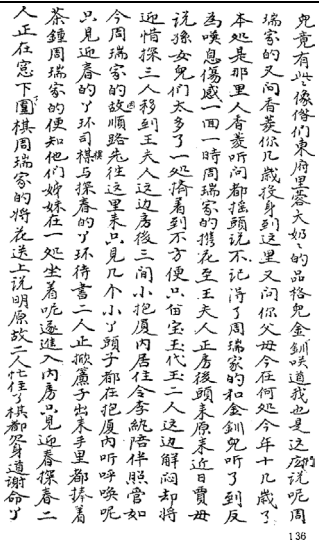 兒竟有些像俗们東府里蓉大奶〻的品格兒金釧咲道我也是这庅说呢周
瑞家的又问香菱你几歲投身到这里又问你父母今在何処今年十几歲了
本処是那里人香菱听问都摇頭说不记得了周瑞家的和金釧兒听了到反
為嘆息傷感一回一時周瑞家的携花至王夫人正房後頭来原来近日賈母
说孫女兒们太多了一処擠着到不方便只畄宝玉代玉二人这边解悶却将
迎惜探三人移到王夫人这边房後三间小抱厦内居住令李紈陪伴照管如
今周瑞家的故順路先往这里来只見几个小丫頭子都在抱厦内听呼唤呢
只見迎春的丫环司棋與探春的丫环待書二人正掀簾子出来手里都捧着
茶鍾周瑞家的便知他们姊妹在一処坐着呢遂進入内房只見迎春探春二
人正在窓下圍棋周瑞家的将花送上说明原故二人忙住了棋都欠身道謝命了
们
136